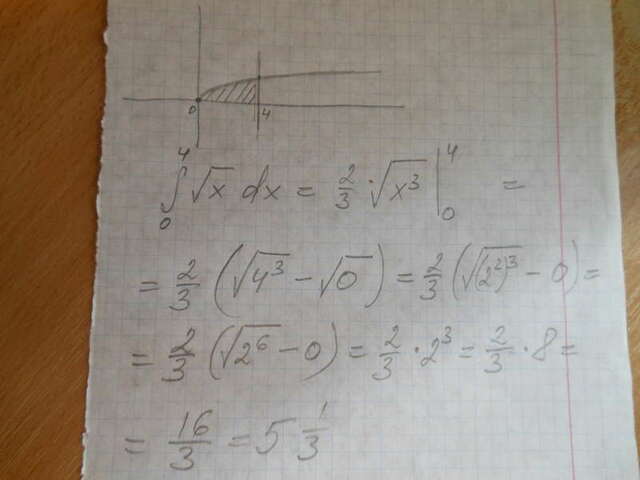 0 4
∫₀⁴ √x dx = 2/3 · √x³ |₀⁴ =
= 2/3 (√4³ − √0) = 2/3 (√(2²)³ − 0) =
= 2/3 (√2⁶ − 0) = 2/3 · 2³ = 2/3 · 8 =
= 16/3 = 5 1/3